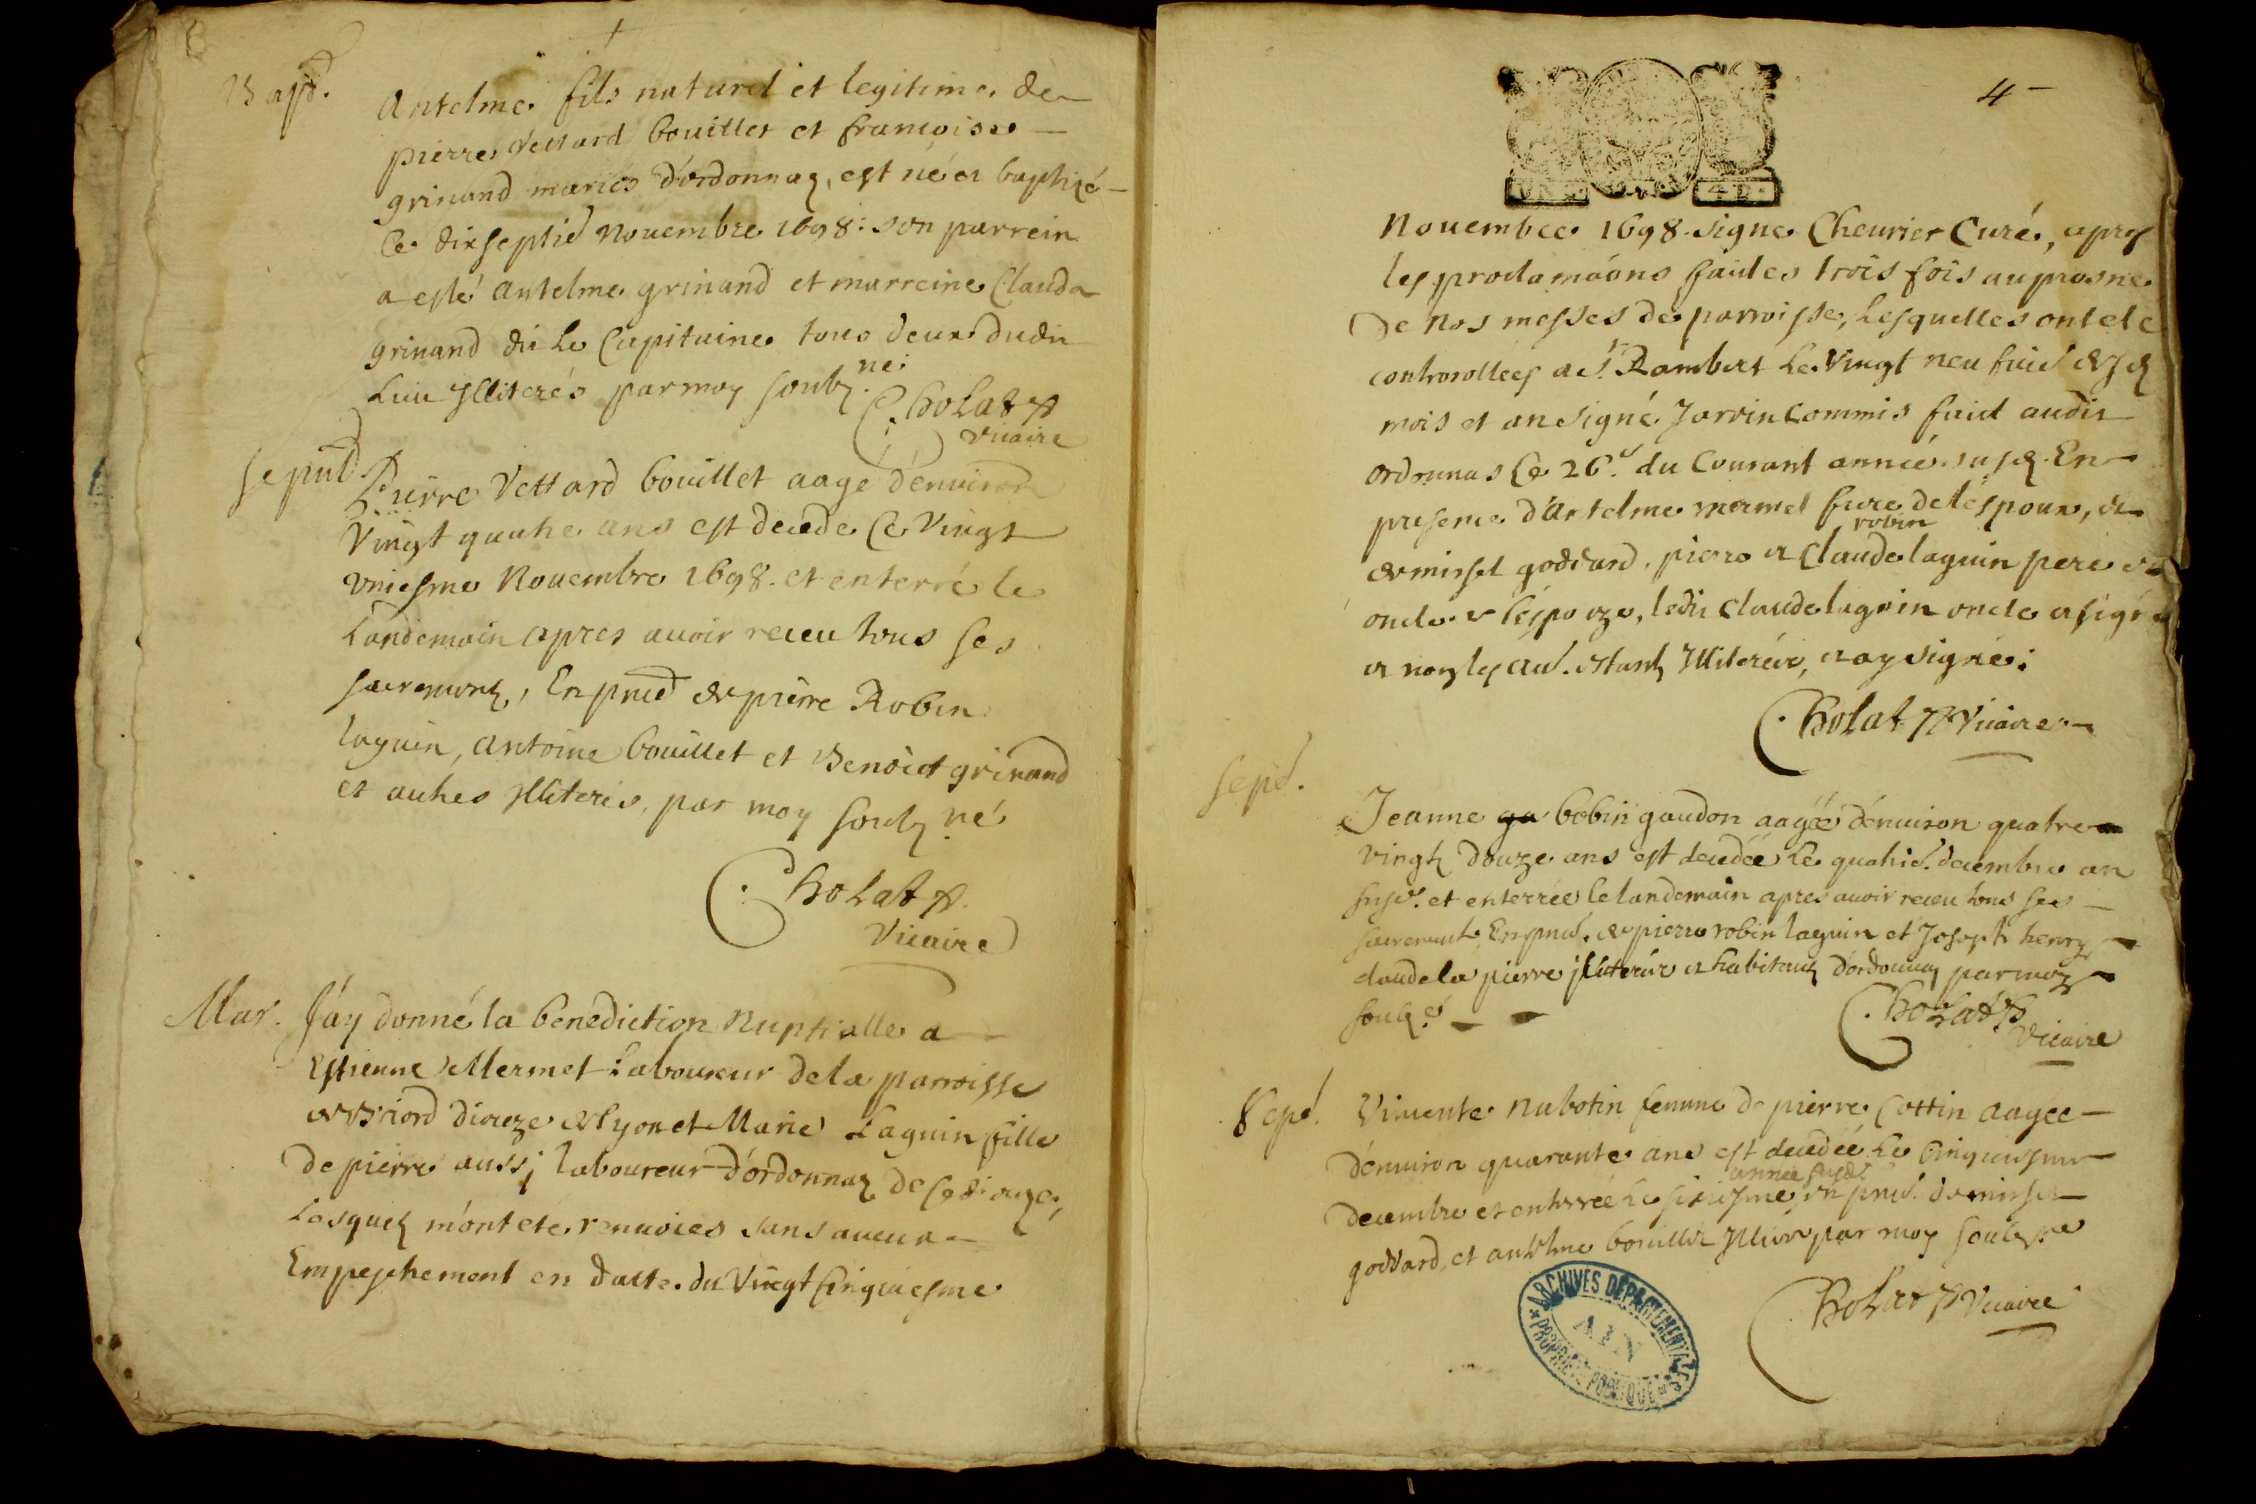 Bapt.
Antelme fils naturel et legitime de
pierre vettard bouillet et francoise
grinand mariés d'ordonnaz, est né et baptizé
le dixseptie Novembre 1698: son parrein
a esté antelme grinand et marreine Clauda
grinand dit le Capitaine tous deux dudit
Lieu Illiterés par moy soubz.né
Cholat p
vicaire
Sepult.
Pierre Vettard bouillet aagé d'enuiron
Vingt quatre ans est decede le Vingt
vniesme Nouembre 1698. et enterré le
Landemain apres auoir receu tous ses
sacrements, En pnce de pierre Robin
laguin, antoine bouillet et Benoict grinand
et autres Illiterés, par moy soubz.né
Cholat p.
Vicaire
Mar.
J'ay donné la benediction Nuptialle a
Estienne Mermet Laboureur de la parroisse
de Briord dioceze de lyon et Marie Laguin fille
de pierre aussj laboureur d'ordonnaz de ce dioceze,
Lesquelz m'ont ete renuoies sans aucun
Empeschement en datte du Vingt Cinquiesme
4
Nouembre 1698. signe Cheurier Curé, apres
les proclamaons faictes trois fois au prosne
De Nos messes de parroisse, Lesquelles ont ete
controollees a St. Rambert Le Vingt neufuie desd
mois et an signé Jarvin Commis faict audit
ordonnas le 26e. du Courant année susd. En
presence d'antelme mermet frere de l'espoux, et
de misset goddard, piere et Claude robin laguin pere et
oncle de l'espouze, ledit Claude laguin oncle a signé
et non les au. estantz Illiterés, et ay signé:
Cholat p Vicaire
Sept.
Jeanne ga bobin gaudon aagéé d'enuiron quatre
vingtz douze ans est decedée le quatrie. decembre an
susd. et enterrée le landemain apres auoir receu tous ses
sacrements En pnce. de pierre robin laguin et Joseph henry
claude la pierre jlliterés et habitantz d'ordonnaz par moy
soubz.é
Cholat p
Vicaire
Sept.
Vincente Nabotin femme de pierre Cottin aagee
d'enuiron quarante ans est decedéé Le Cinquiesme
decembre et enterrée Le sixiesme année susde en pnce. de misset
goddard, et antelme bouillet Illiteré par moy soubz.né
Cholat p Vicaire
ARCHIVES DÉPARTEMENTALES
AIN
PROPRIÉTÉ PUBLIQUE